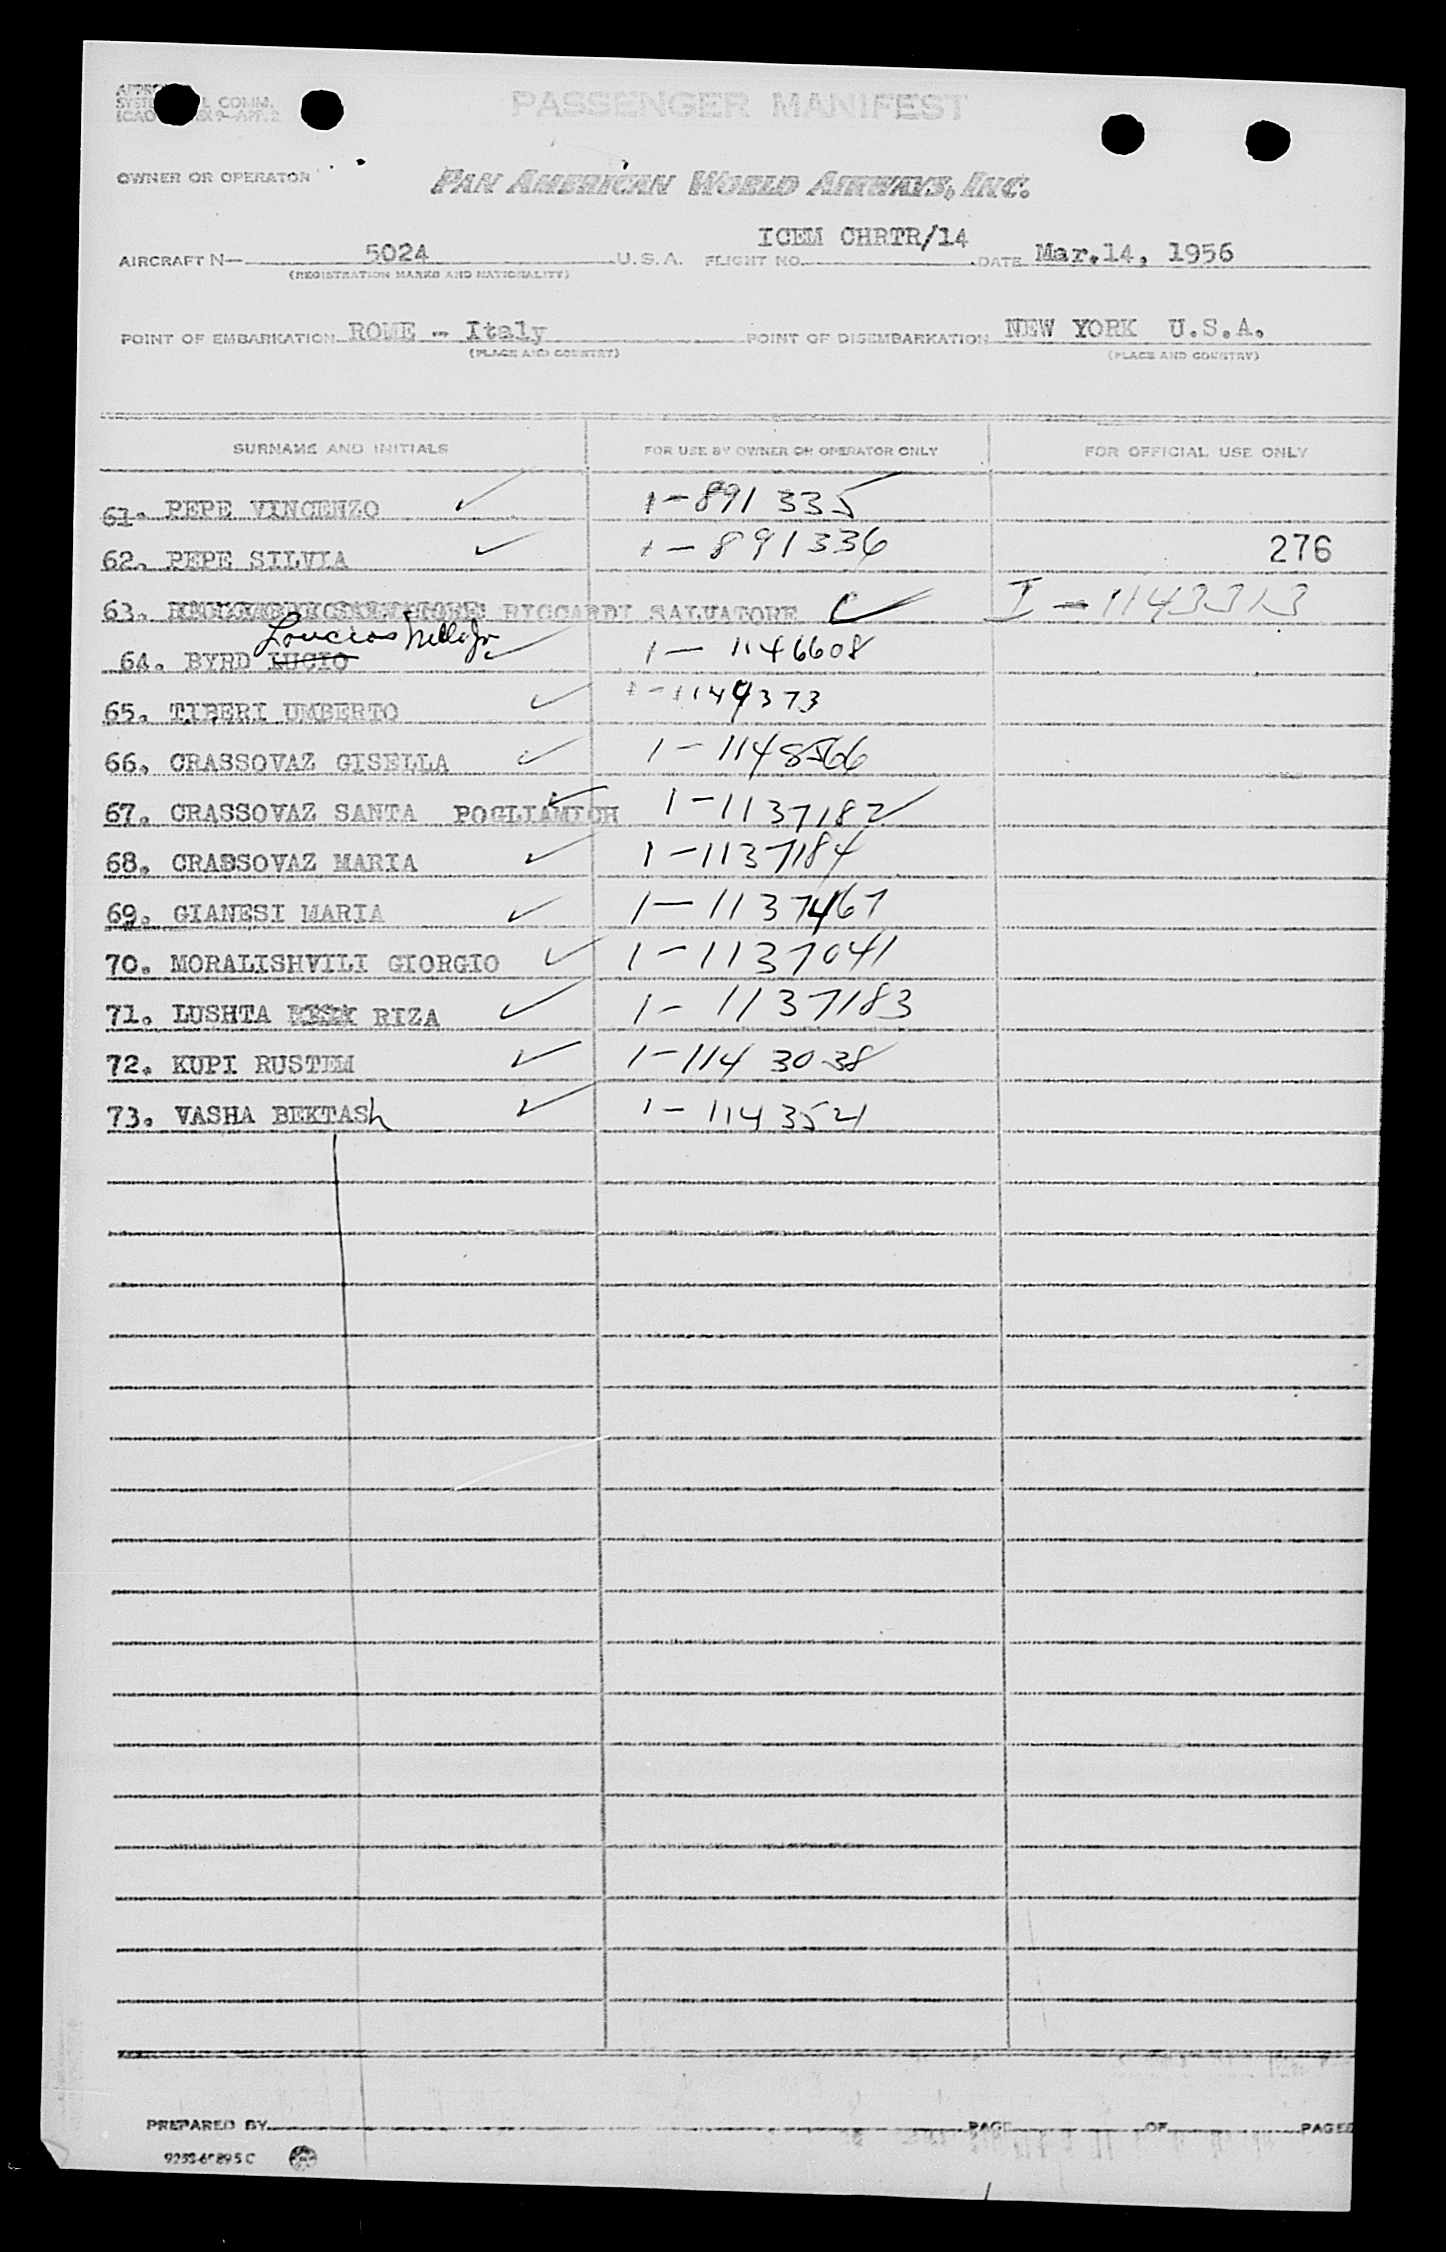 PASSENGER MANIFEST
OWNER OR OPERATOR
PAN AMERICAN WORLD AIRWAYS, INC.
ICEM CHRTR/14
AIRCRAFT N— 5024 U. S. A. FLIGHT NO. DATE Mar.14, 1956
(REGISTRATION MARKS AND NATIONALITY)
POINT OF EMBARKATION ROME - Italy POINT OF DISEMBARKATION NEW YORK U.S.A.
(PLACE AND COUNTRY) (PLACE AND COUNTRY)
SURNAME AND INITIALS FOR USE BY OWNER OR OPERATOR ONLY FOR OFFICIAL USE ONLY
61. PEPE VINCENZO ✓ 1-891335
62. PEPE SILVIA ✓ 1-891336 276
63. RICCARDI SALVATORE ✓ I-1143313
64. BYRD LUCIO ✓ 1-1146608
65. TIBERI UMBERTO ✓ 1-1149373
66. CRASSOVAZ GISELLA ✓ 1-1148566
67. CRASSOVAZ SANTA POGLIAMICH ✓ 1-1137182
68. CRASSOVAZ MARIA ✓ 1-1137184
69. GIANESI MARIA ✓ 1-1137467
70. MORALISHVILI GIORGIO ✓ 1-1137041
71. LUSHTA RIZA ✓ 1-1137183
72. KUPI RUSTEM ✓ 1-1143038
73. VASHA BEKTASh ✓ 1-1143521
PREPARED BY PAGE OF PAGES